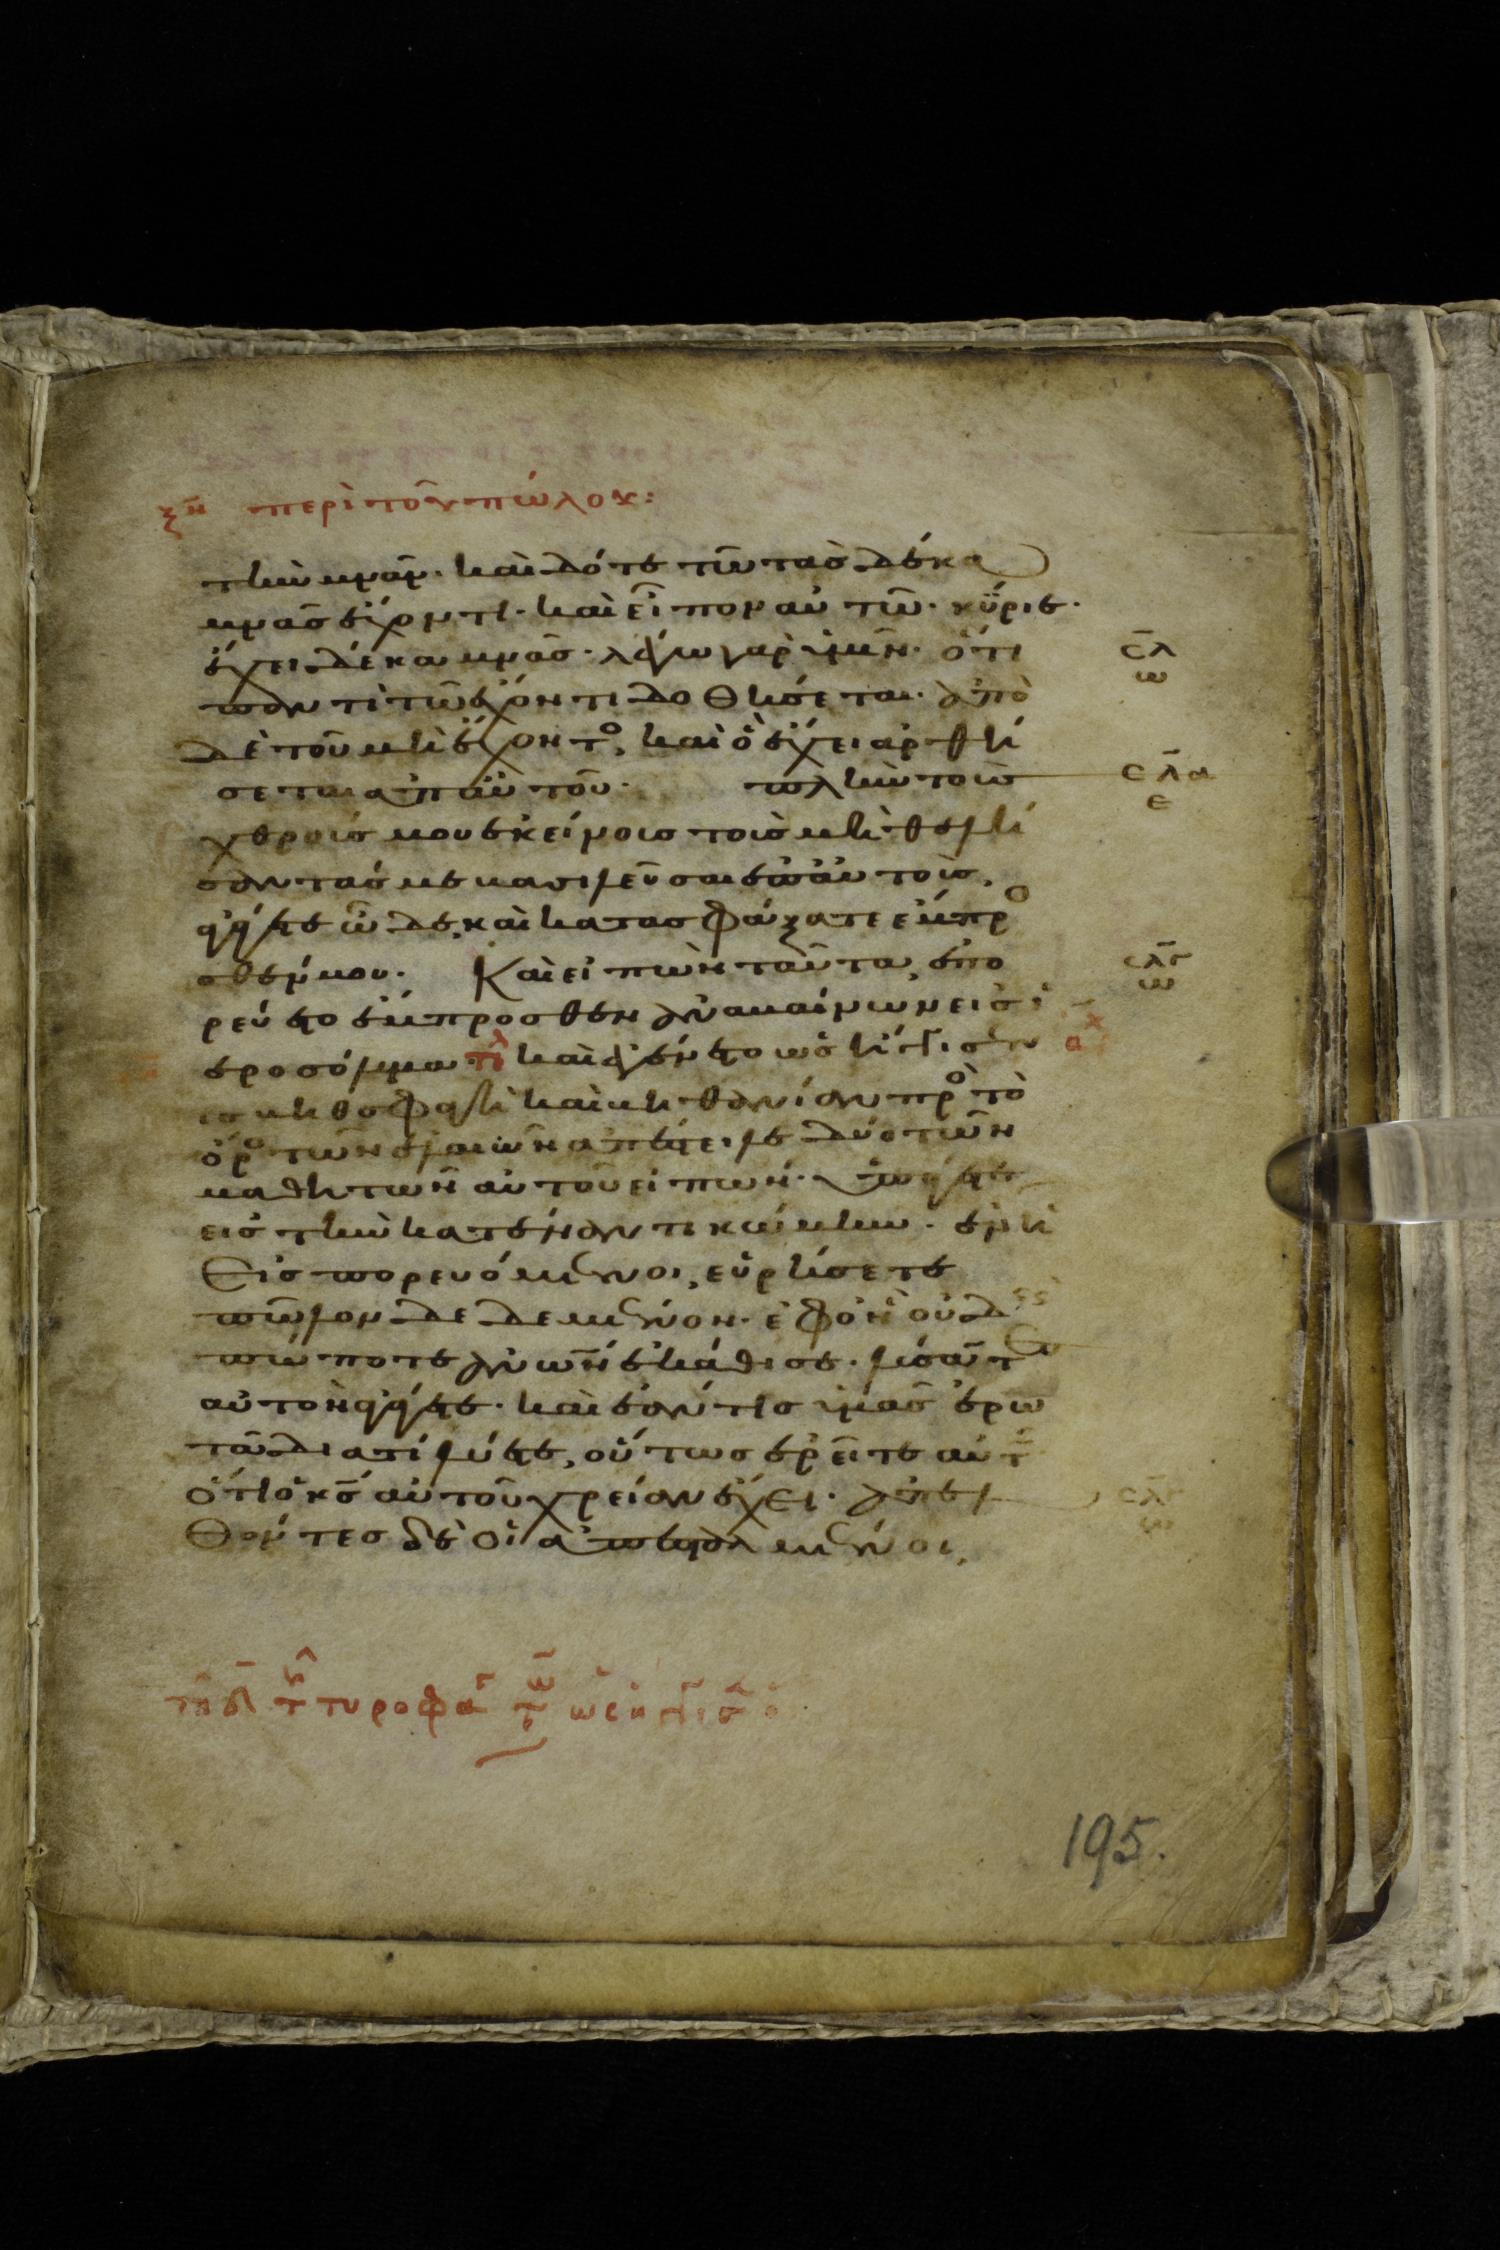 ξη περὶ τοῦ πώλου:
τὴν μνᾶν· καὶ δότε τῶ τὰσ δέκα
μνᾶσ ἔχοντι· καὶ εἶπον αὐτῶ· κύριε·
ἔχει δέκα μνᾶσ· λέγω γὰρ ὑμῖν· ὅτι
παντὶ τῶ ἔχοντι δοθήσεται· ἀπὸ
δὲ τοῦ μὴ ἔχοντο, καὶ ὃ ἔχει ἀρθή
σεται ἀπ αὐτοῦ· πλὴν τοὺσ
χθροὺσ μου ἐκείνουσ τοὺσ μὴ θελή
σαντάσ με βασιλεῦσαι ἐπ αὐτοὺσ,
ἀγάγετε ὧδε, καὶ κατασφάξατε ἔμπρο
σθέν μου. Καὶ εἰπὼν ταῦτα, ἐπο
ρεύετο ἔμπροσθεν ἀναβαίνων εἰσ ἱ
εροσόλυμα· τλ καὶ ἐγένετο ὡσ ἤγγισεν
εισ βηθσφαγὴ καὶ βηθανίαν πρὸ τὸ
ὄρο τῶν ἐλαιῶν ἀπέστειλε δύο τῶν
μαθητῶν αὐτοῦ εἰπών· ὑπάγετε
εἰσ τὴν κατέναντι κώμην· ἐν ἧ
εἰσπορευόμενοι, εὑρήσετε
πῶλον δεδεμένον· ἐφ ὃν οὐδεὶσ
πώποτε ἀνων ἐκάθισε· λύσαντε
αὐτὸν ἀγάγετε· καὶ ἐάν τισ ὑμᾶσ ἐρω
τᾶ διατί λύετε, οὕτωσ ἐρεῖτε αὐτ
ὅτι ὁ κσ αὐτοῦ χρείαν ἔχει· ἀπελ
θόντεσ δὲ οἱ ἀπεσταλμένοι,
σλ
ω
σλα
ε
σλβ
ω
195.